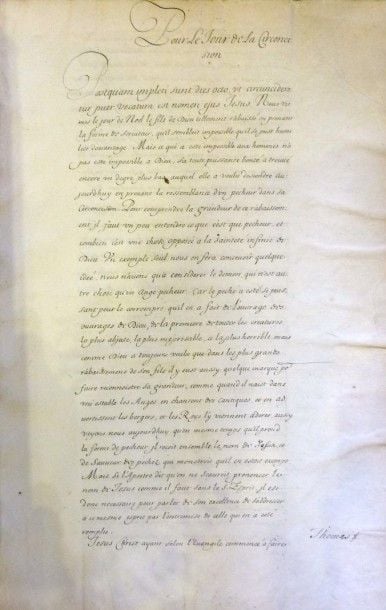 Pour Le Jour de La Circonci
sion
Postquam impleti sunt dies octo, vt circuncideretur
puer vocatum est nomen ejus Jesus Nous vis
mes le jour de Noel le fils de Dieu tellement rabaissé en prenant
la forme de serviteur, qu'il sembloit impossible qu'il se pust humi
lier davantage. Mais ce qui a esté impossible aux hommes n'a
pas esté impossible a Dieu, sa toute puissante bonté a treuvé
encore un degré plus bas auquel elle a voulu descendre Au
jourdhuy en prenant la ressemblance d'un pecheur dans sa
Circoncision Pour comprendre la grandeur de ce rabaissem
ent, il faut un peu entendre ce que c'est que pecheur, et
combien c'est une chose opposée a la Sainteté infinie de
Dieu Un exemple seul nous en fera concevoir quelque
idée nous n'avons qu'a considerer le demon qui n'est au
tre chose qu'un Ange pecheur Car le peché a esté si puis
sant pour le corrompre qu'il en a fait de l'ouvrage des
ouvrages de Dieu, de la premiere de toutes les creatures,
la plus abjecte, la plus miserable, a la plus horrible, mais
comme Dieu a toujours voulu que dans les plus grands
rabaissemens de son fils il y eust aussy quelque marque po
faire reconnoistre sa grandeur, comme quand il naist dans
une estable les Anges en chantent des cantiques, et en ad
vertissent les bergers, et les Roys l'y viennent adorer, aussy
voyons nous aujourdhuy qu'en mesme temps qu'il prend
la forme de pecheur, il reçoit ensemble le nom de Jesus, et
de Sauveur des pechez, qui monstrent qu'il en estoit exempt
Mais si l'Apostre dit qu'on ne sçauroit prononcer le
nom de Jesus comme il faut sans le St Esprit, il est
donc necessaire pour parler de son excellence de s'addresser
a ce mesme esprit par l'entremise de celle qui en a esté
remplie.
Jesus Christ ayant selon l'Euangile commencé a faire
Thomas